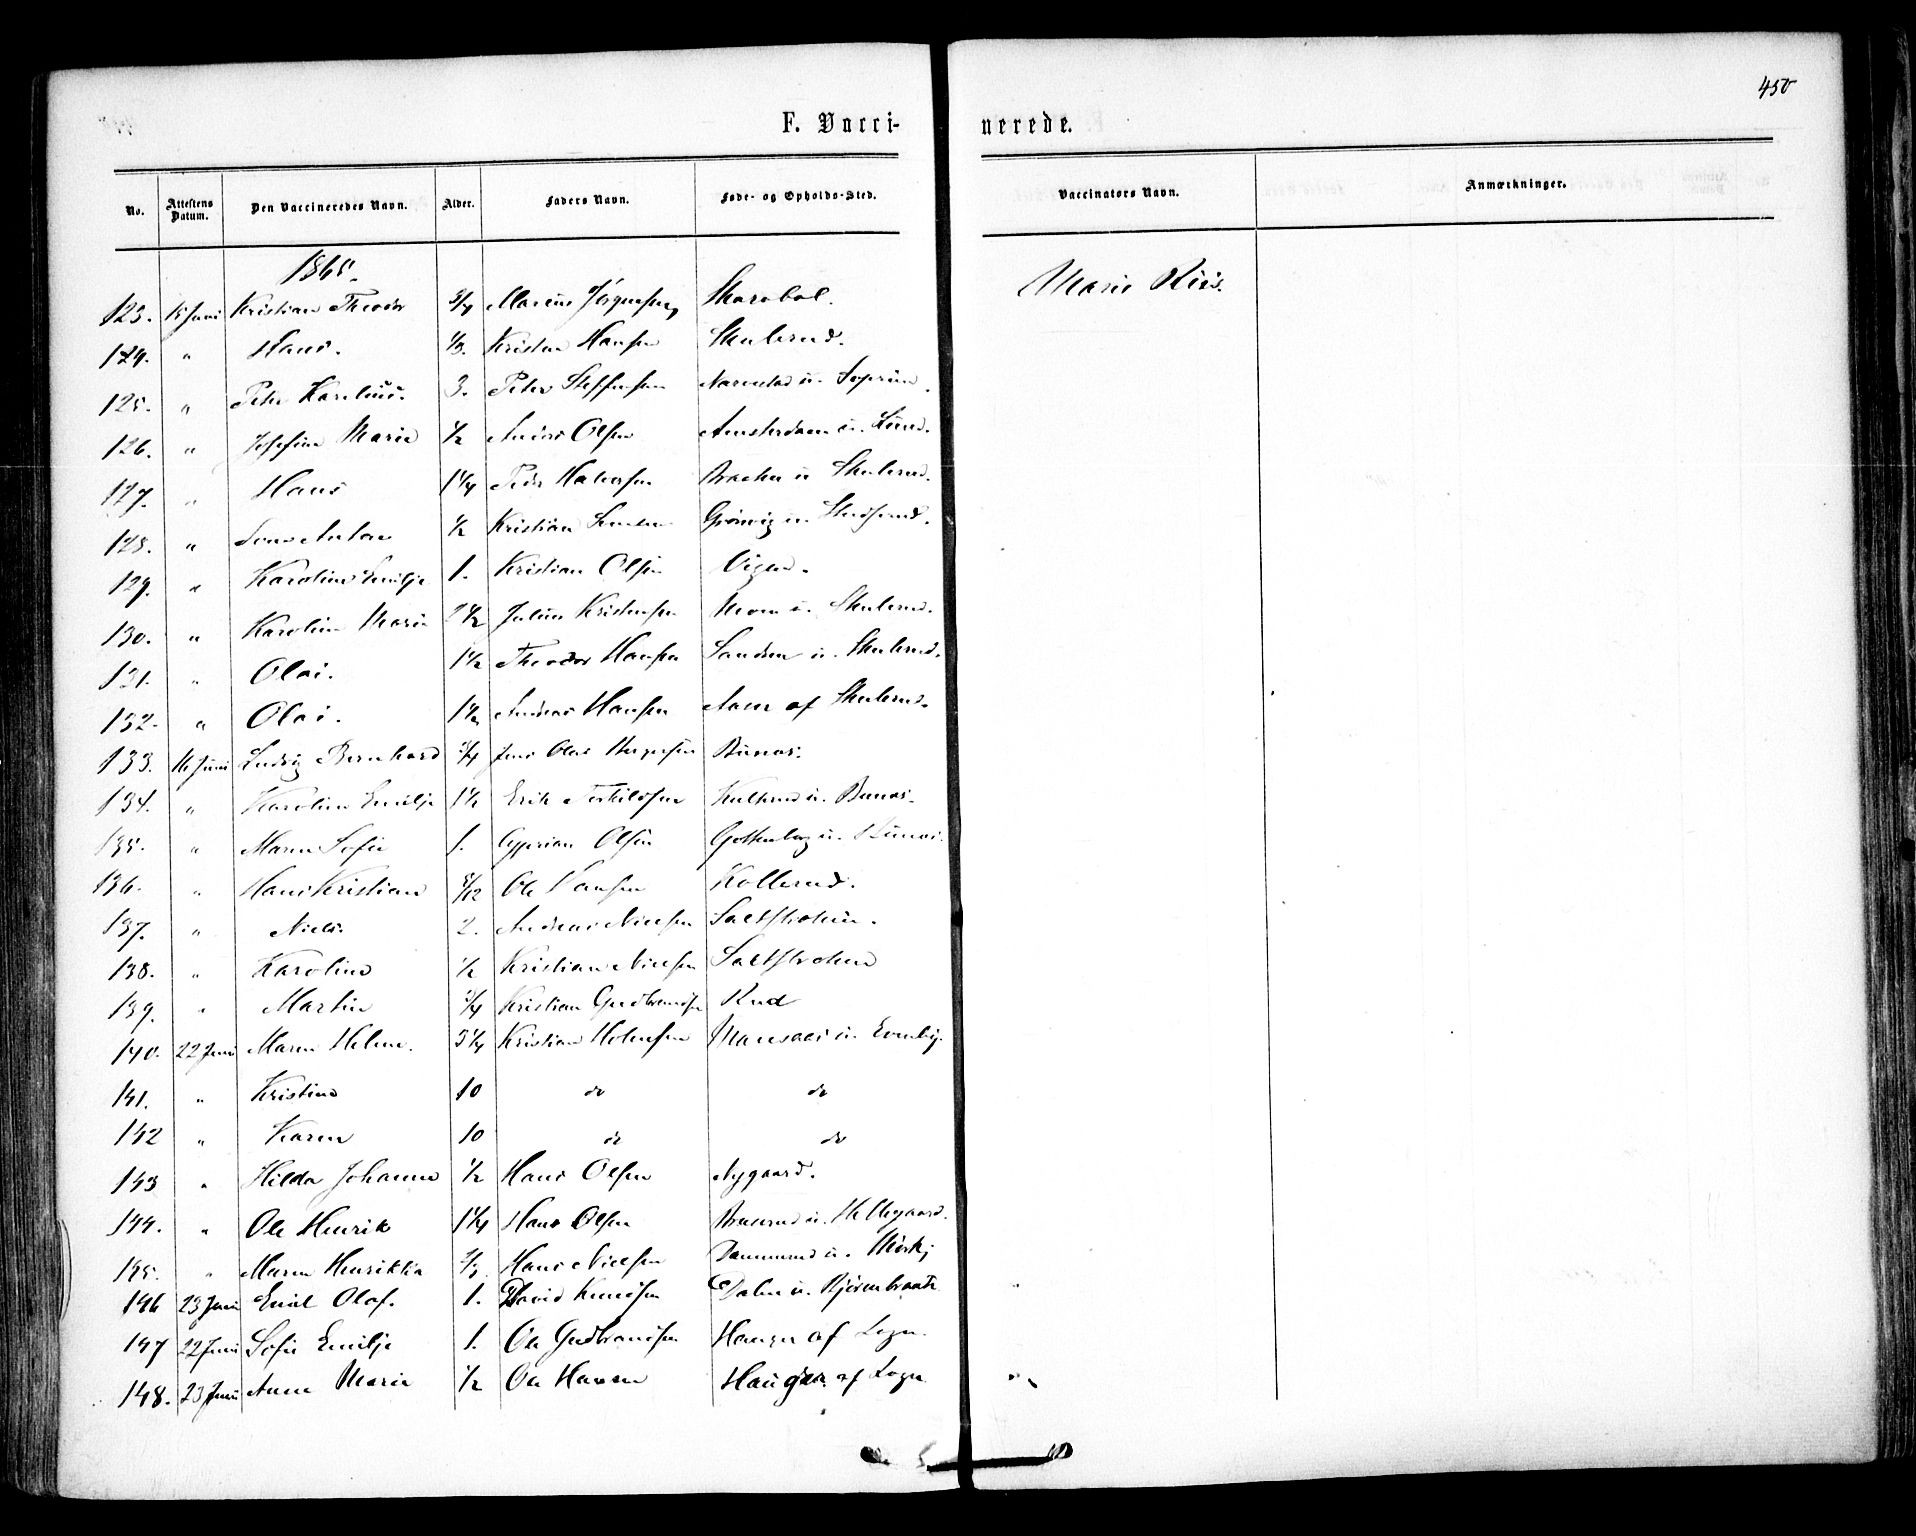 450
F. Vacci-nerede.
No. Attestens Datum. Den Vaccineredes Navn. Alder. Faders Navn. Føde- og Opholds-Sted. Vaccinators Navn. Anmærkninger.
1865.
123. 15 Juni Kristian Theodor 3/4 Marcus Jørgensen Marie Riis.
124. " Hans. 1/3. Kristen Hansen Skulerud.
125. " Peter Karelius. 3. Peter Steffensen
126. " Josefine Marie 1/2 Anders Olsen Amsterdam u. Lund.
127. " Hans 1 1/4 Peder Halvorsen Braaten u Skulerud.
128. " Anton 1/2 Kristian
129. " Karoline Emilje 1. Kristian Olsen Vigen.
130. " Karoline Marie 2 1/2 Julius Kristensen Moen u. Skulerud.
131. " Olai. 1 1/2 Theodor Hansen Sanden u. Skulerud.
132. " Olai. 1 1/2 Andreas Hansen Aasen af Skulerud.
133. 16 Juni Ludvig Bernhard 3/4 Jens Olai Bunæs.
134. " Karoline Emilje 1 1/2 Erik Terkildsen u. Bunæs.
135. " Maren Sofie 1. Cyprian Olsen Gothenborg u. Bunæs.
136. " Hans Kristian 5/12 Ole Hansen Kollerud.
137. " Niels. 2. Andreas Nielsen Saltholmen.
138. " Karoline 1/2 Kristian Nielsen
139. " Martin 3/4 Kristian Gudbrandsen Rud
140. 22 Juni Maren Helene. 3 1/4 Kristian u. Evenby.
141. " Kristine 10 do do
142 " Karen 10 do do
143 " Hilda Johanne 1/2 Hans Olsen Nygaard.
144. " Ole Henrik 1 1/4 Hans Olsen u. Hellegaard.
145. " Maren Henrikka 2/3 Hans Nielsen Dammerud u. Mørkj
146 23 Juni Emil Olaf. 1. David Knudsen Dalen u. Bjørnebraate
147 22 Juni Sofie Emilje 1. Ole Gudbrandsen Haugen af Logn.
148. 23 Juni Anne Marie 1/2 Ole Hansen Haugen af Logn